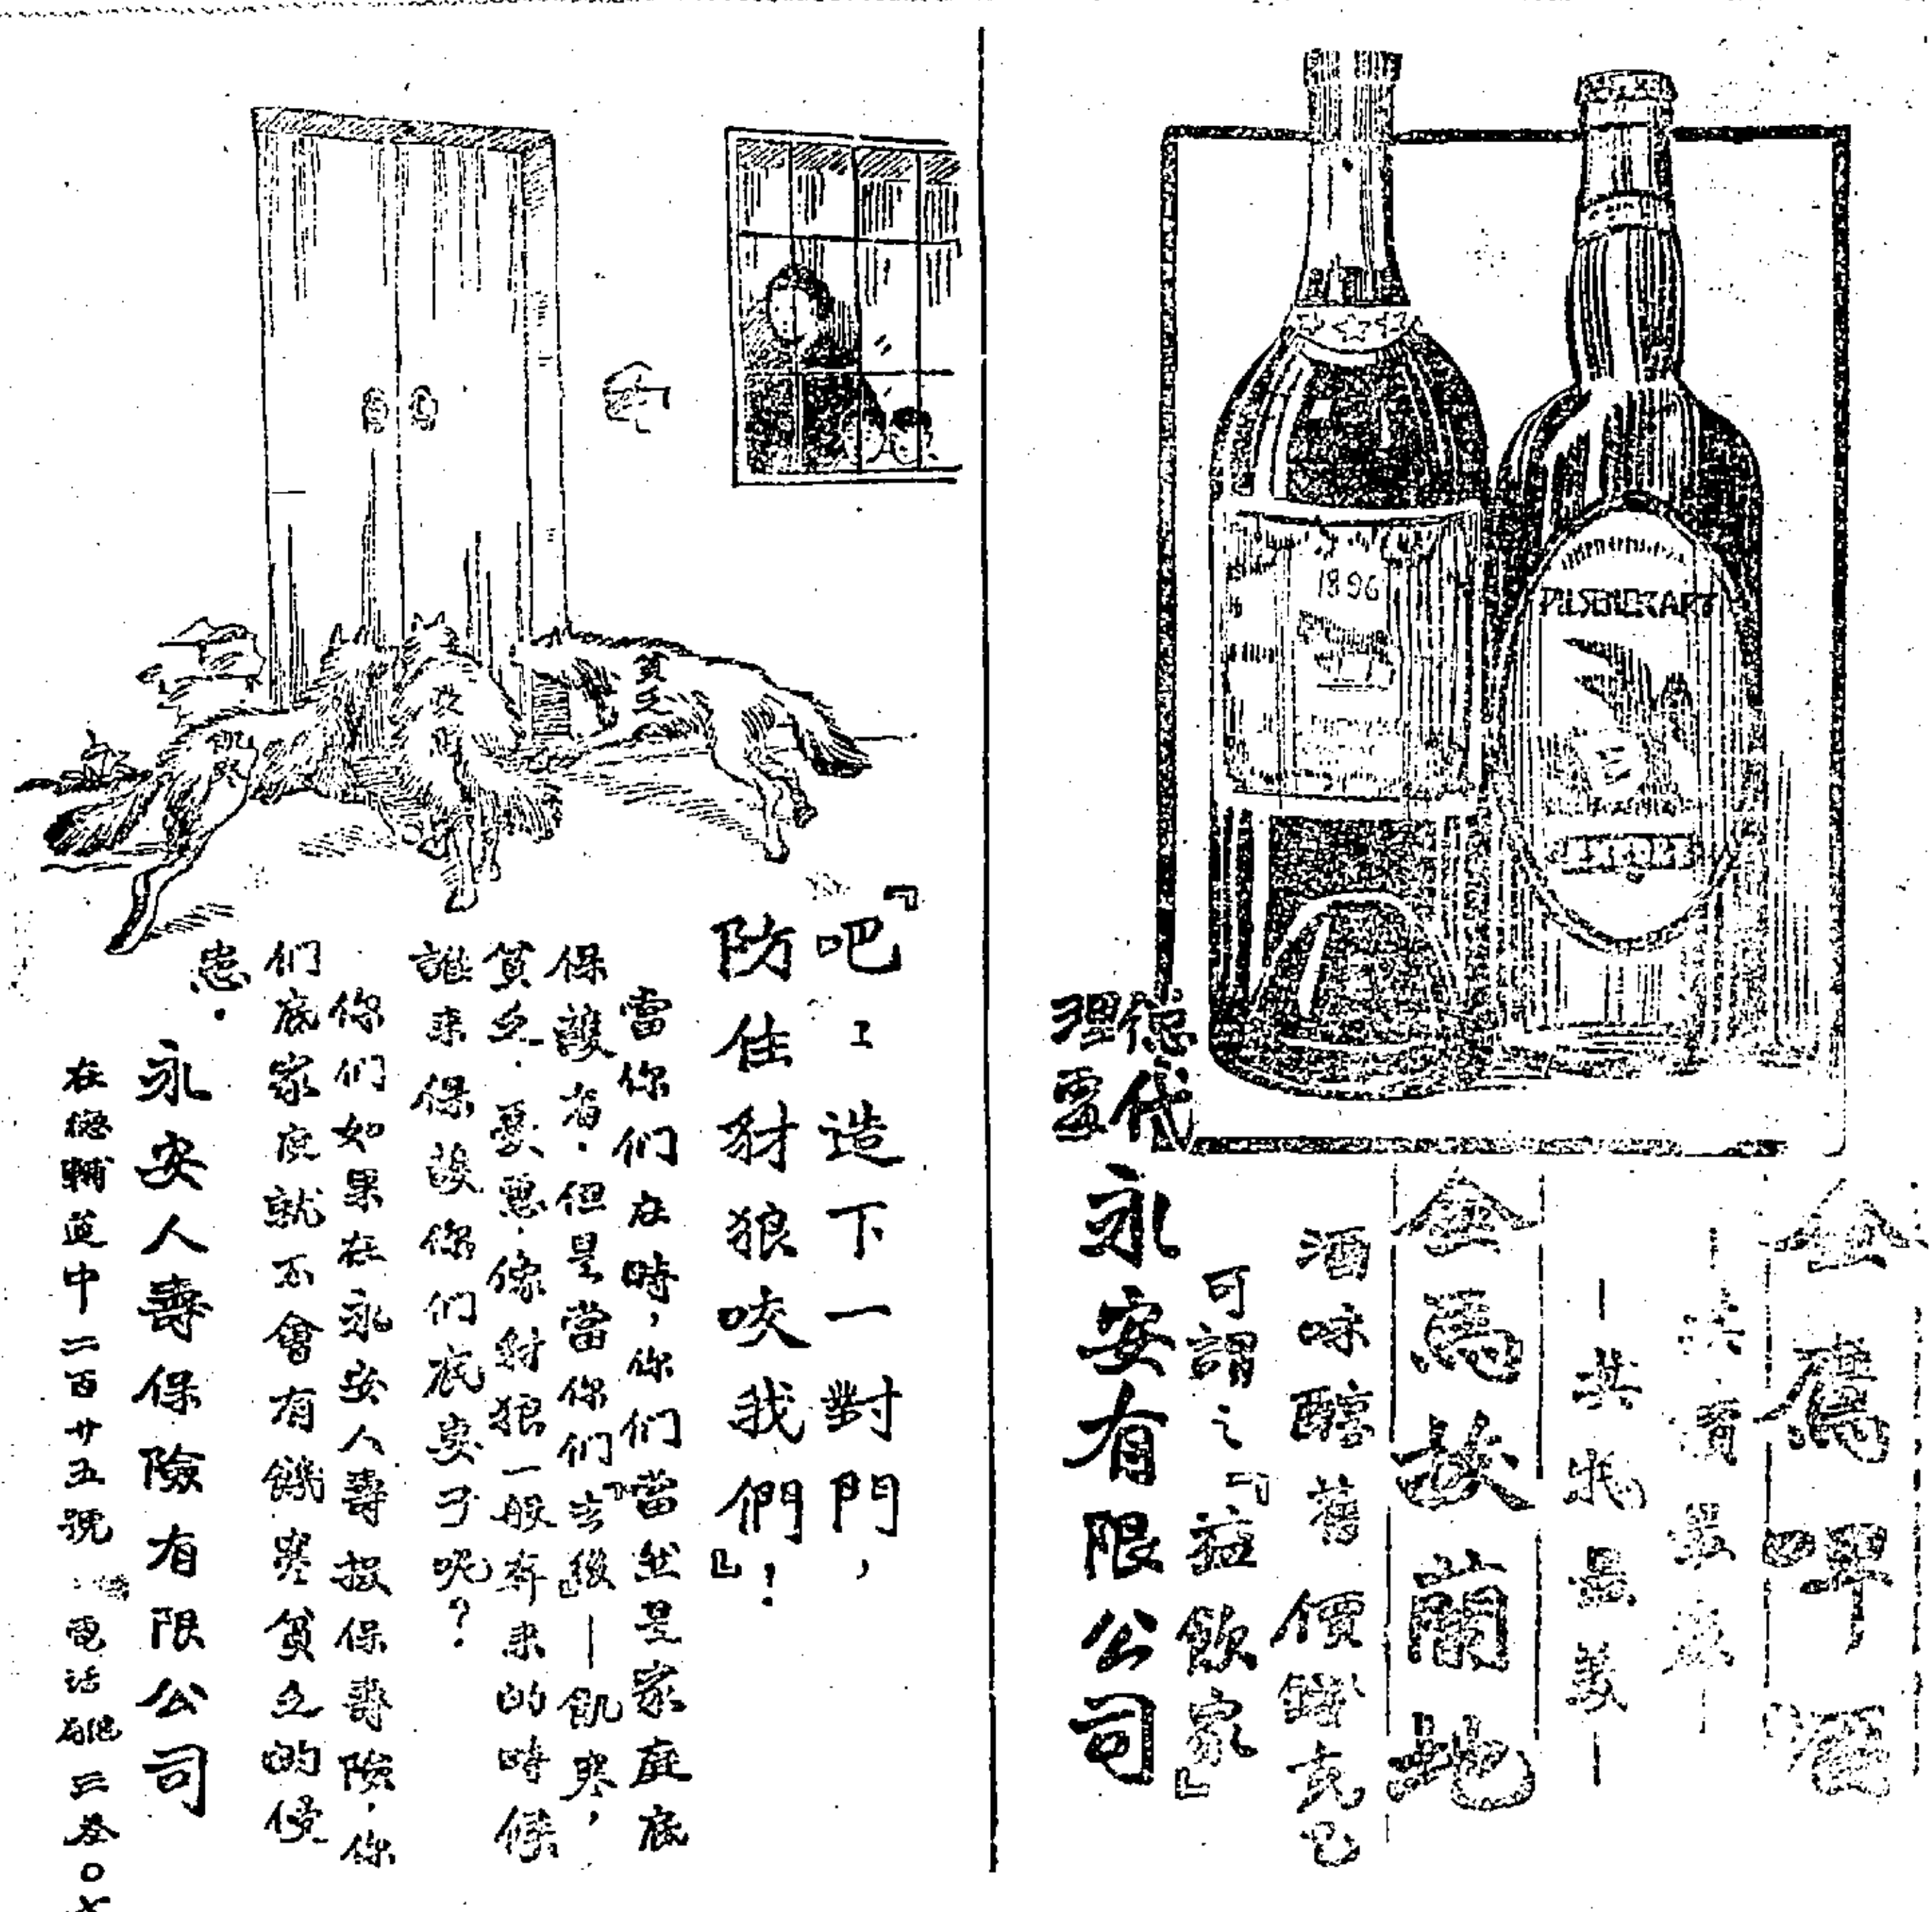 1896
PILSENER ART
EXPORT
金鷹啤酒
其氣最美
金馬拔蘭地
酒味醇舊價錢克己
可謂之『益飲家』
總代理處
永安有限公司
貧乏
飢寒
『吧！造下一對門，
防住豺狼咬我們！』
當你们在時，你们當然是家庭底
保護者．但是當你们『去後』—飢寒，
貧乏．憂患．像豺狼一般奔来的時候
誰来保護你们底妻子呢？
你们如果在永安人壽投保壽險．你
们底家庭就不會有饑寒貧乏的侵
患．
永安人壽保險有限公司
在德輔道中二百廿五號
電話